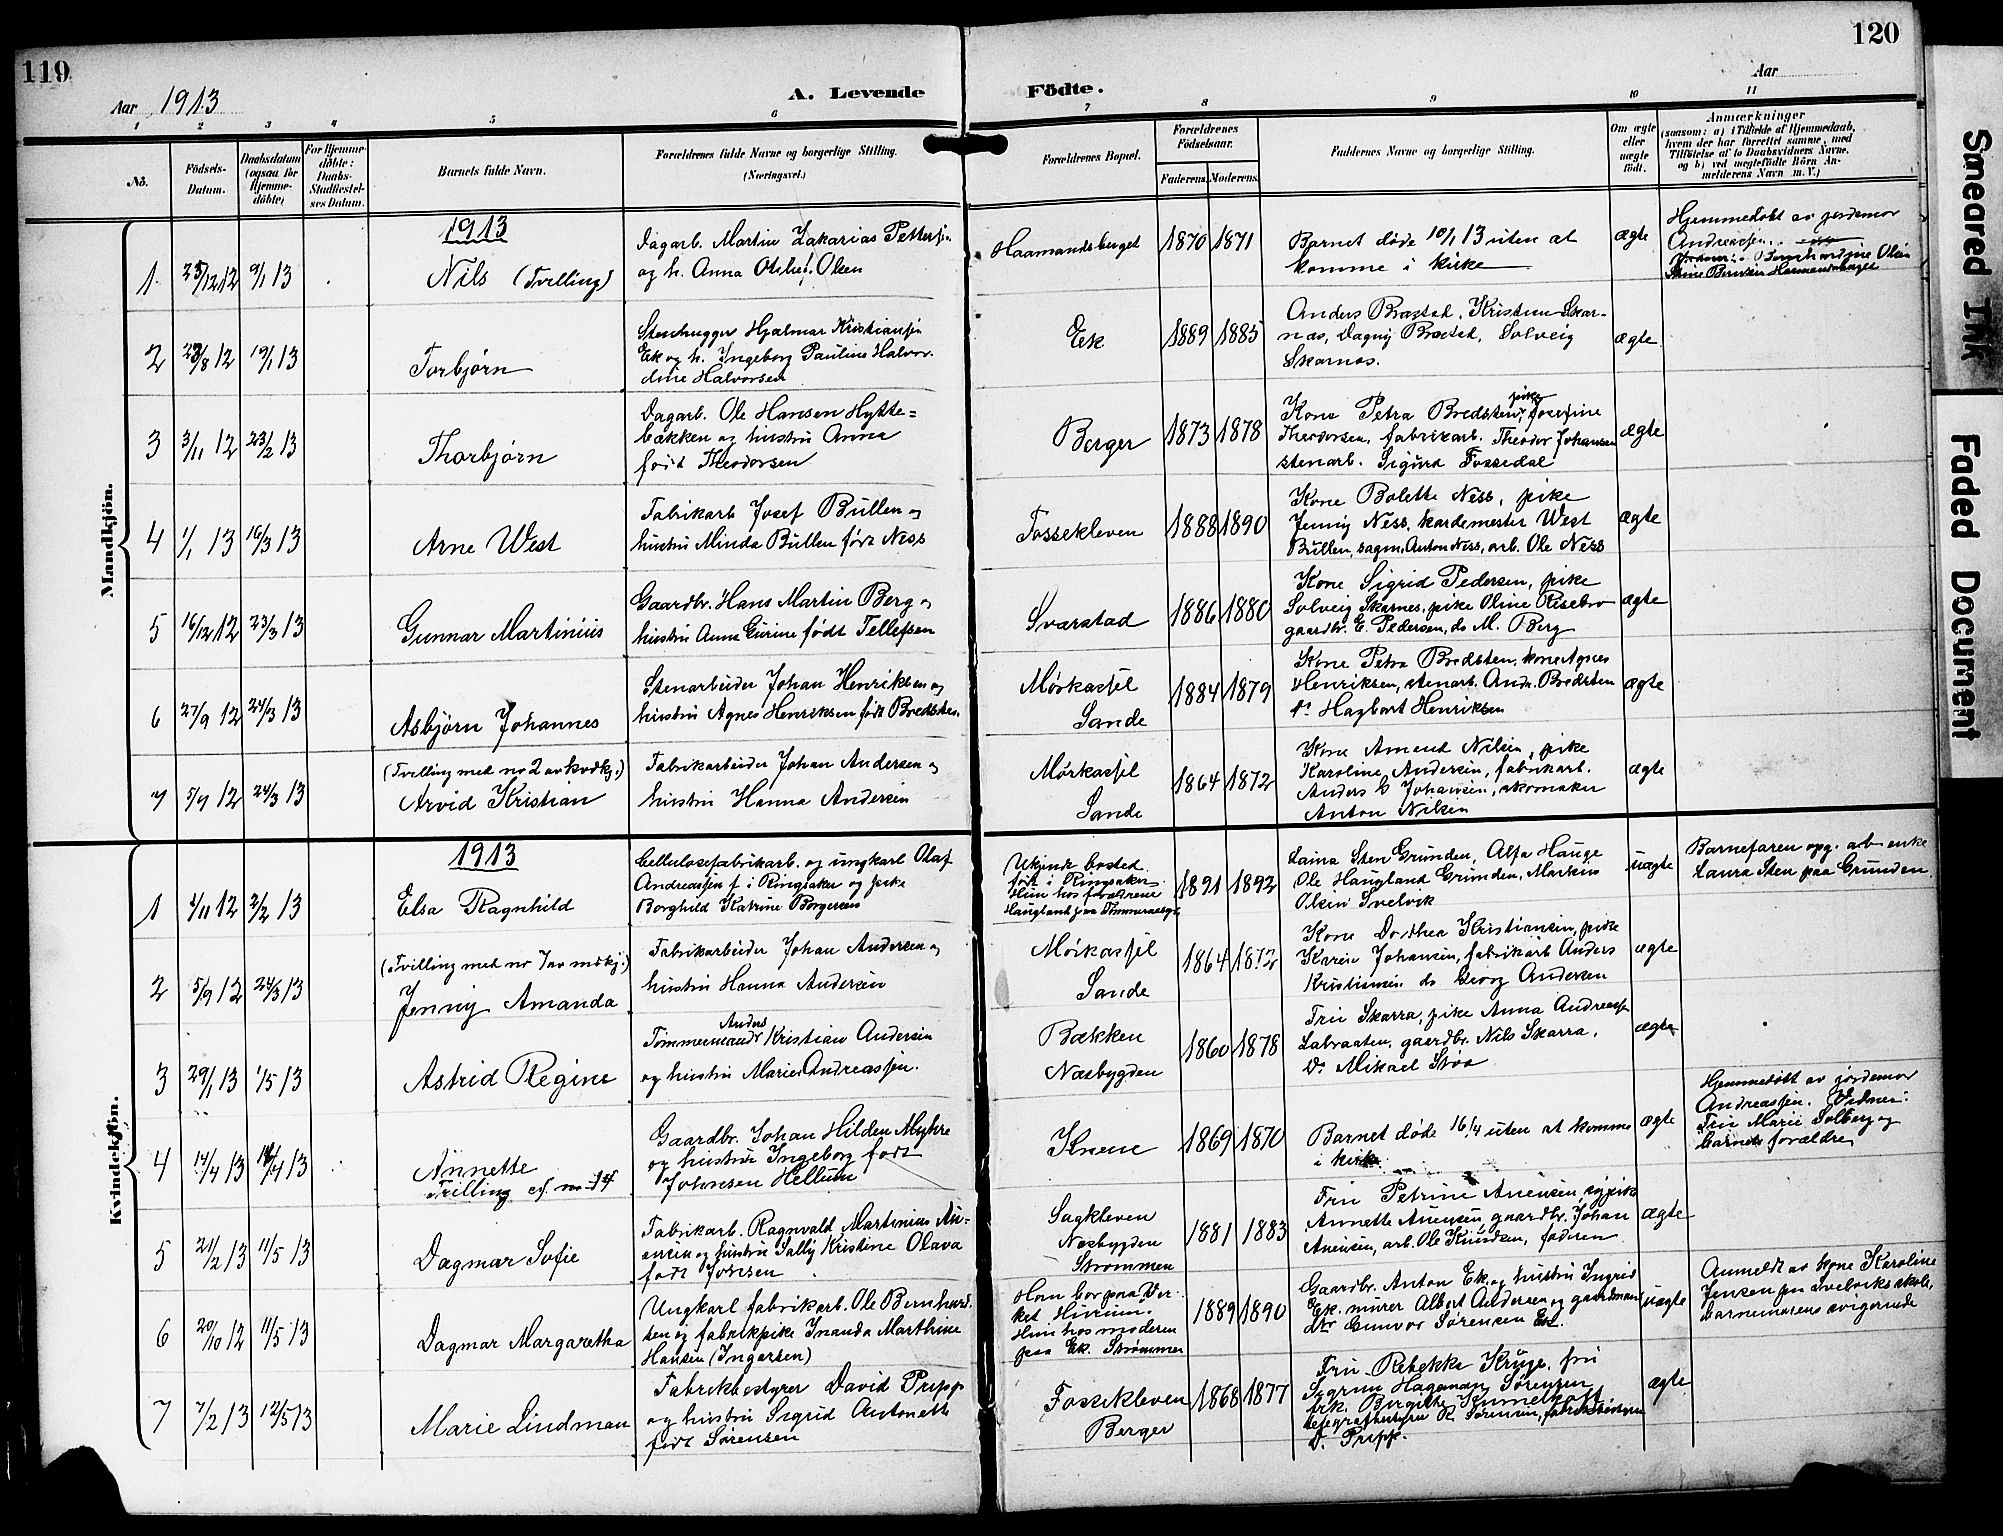 119
120
Aar 1913
A. Levende Födte.
Aar
1 2 3 4 5 6 7 8 9 10 11
Nò.
Födsels-
Datum.
Daabsdatum
(ogsaa for
Hjemme-
döbte)
For Hjemme-
döbte:
Daabs-
Stadfæstel-
ses Datum.
Barnets fulde Navn.
Forældrenes fulde Navne og borgerlige Stilling.
(Næringsvei.)
Forældrenes Bopæl.
Forældrenes
Födselsaar.
Faderens. Moderens.
Faddernes Navne og borgerlige Stilling.
Om ægte
eller
uægte
födt.
Anmærkninger
(saasom: a) i Tilfælde af Hjemmedaab,
hvem der har forrettet samme, med
Tilföielse af to Daabsvidners Navne,
og b) ved uægtefödte Börn An-
melderens Navn m. V.)
Mandkjön.
1913
1 25/12 12 9/1 13
Nils (Tvilling)
Dagarb. Martin Zakarias Petters.
og h. Anna Olsen
Haamandsberget
1870 1871
Barnet døde 10/1 13 uten at
komme i kirke
ægte
Hjemmedøbt av jordemor
Andreassen.
2 23/8 12 19/1 13
Torbjørn
Stenhugger Hjalmar Kristiansen
Ek og h. Ingeborg Pauline Halvor-
dine Halvorsen
Ek
1889 1885
Anders Brastad, Kristian Skar-
næs, Dagny Brastad, Solveig
Skarnæs.
ægte
3 3/11 12 23/2 13
Thorbjørn
Dagarb. Ole Hansen Hytte=
bækken og hustru Anna
født Theodorsen
Berger
1873 1878
Kone Petra Bredsten, pike Josefine
Theodorsen, fabrikarb. Theodor Johansen
stenarb. Sigurd Fossedal
ægte
4 1/1 13 16/3 13
Arne West
Fabrikarb Josef Bullen og
hustru Minda Bullen født Ness
Fossekleven
1888 1890
Kone Bolette Ness, pike
Jenny Ness, kardemester West
Bullen, sagm. Anton Ness, arb. Ole Ness
ægte
5 16/12 12 23/3 13
Gunnar Martinius
Gaardbr. Hans Martin Berg og
hustru Anna Gurine født Tellefsen
Svarstad
1886 1880
Kone Sigrid Pedersen, pike
Solveig Skarnes, pike Oline Risebro
gaardbr. E. Pedersen, do M. Berg
ægte
6 27/9 12 24/3 13
Asbjørn Johannes
Stenarbeider Johan Henriksen og
hustru Agnes Henriksen født Bredsten.
Mørkassel
Sande
1884 1879
Kone Petra Bredsten, kone Agnes
Henriksen, stenarb. Andr. Bredsten
do Hagbart Henriksen
ægte
7 5/9 12 24/3 13
(Tvilling med no 2 av kvdkj.)
Arvid Kristian
Fabrikarbeider Johan Andersen og
hustru Hanna Andersen
Mørkassel
Sande
1864 1872
Kone Amend Nilsen, pike
Karoline Andersen, fabrikarb.
Anders Johansen, skomaker
Anton Nilsen
ægte
Kvindekjön.
1913
1 1/11 12 2/2 13
Elsa Ragnhild
Cellulosefabrikarb. og ungkarl Olaf
Andreassen f. i Ringsaker og pike
Borghild Katrine Borgersen
Ukjendt bosted
født i Ringsaker.
Hun hos forældrene
Haugland paa
1891 1892
Laina Sten Grunden, Alfa Hauge
Ole Haugland Grunden, Markus
Olsen Svelvik
uægte
Barnefaren opg. av enke
Laura Sten paa Grunden
2 5/9 12 24/3 13
(Tvilling med no 7 av mdkj.)
Jenny Amanda
Fabrikarbeider Johan Andersen og
hustru Hanna Andersen
Mørkassel
Sande
1864 1872
Kone Dorthea Kristiansen, pike
Karen Johansen, fabrikarb Anders
Kristiansen do Georg Andersen
ægte
3 29/1 13 1/5 13
Astrid Regine
Tømmermand Anders Kristian Andersen
og hustru Marie Andreassen.
Bækken
Næsbygden
1860 1878
Fru Skarra, pike Anna Andreassen
Labraaten, gaardbr. Nils Skarra,
Do Mikael Støa
ægte
4 14/4 13 16/4 13
Annette
Trilling cf. no 14
Gaardbr. Johan Hilden Myhre
og hustru Ingeborg født
Johnsen Hellum
Knem
1869 1870
Barnet døde 16/4 uten at komme
i kirke
ægte
Hjemmedøbt av jordemor
Andreassen. Vidner:
Fru Marie Solberg og
barnets forældre
5 21/2 13 11/5 13
Dagmar Sofie
Fabrikarb. Ragnvald Martinius An-
ensen og hustru Sally Kristine Olava
født Jonsen
Sagkleven
Næsbygden
Strømmen
1881 1883
Fru Petrine Anensen, sypike
Annette Anensen, gaardbr. Johan
Anensen, arb. Ole Knudsen, faderen
ægte
6 20/10 12 11/5 13
Dagmar Margaretha
Ungkarl fabrikarb. Ole Bernhard-
sen og fabrikpike Inanda Marthine
Hansen (Ingarsen)
Han bor paa Ver-
ket Hurum.
Hun hos moderen
paa Ek. Strømmen
1889 1890
Gaardbr. Anton Ek og hustru Ingrid
Ek. murer Albert Andersen og gaardmand
Gunvor Sørensen Ek.
uægte
Anmeldt av kone Karoline
Jensen paa Svelviks skole,
barnemorens svigerinde
7 7/2 13 12/5 13
Marie Lindman
Fabrikbestyrer David Pripp
og hustru Sigrid Antonette
født Sørensen
Fossekleven
Berger
1868 1877
Fru Rebekka Kruge, fru
Sigrun Hageman Sørensen
frk. Birgitte
telegrafbestyrer R. Sørensen, fabrikbestyrer
D. Pripp.
ægte
Smeared Ink
Faded Document